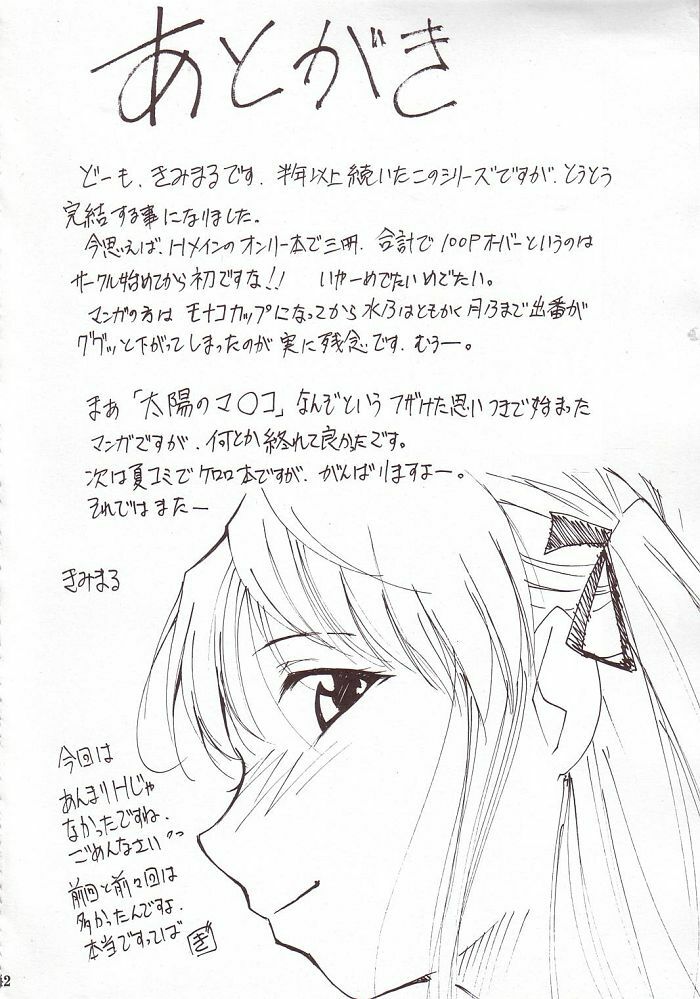 あとがき
どーも、きみまるです。半年以上続いたこのシリーズですが、とうとう
完結する事になりました。
今思えば、Hメインのオンリー本で三冊、合計で100Pオーバーというのは
サークル始めてから初ですな!! いやーめでたいめでたい。
マンガの方は モナコカップになってから 水乃はともかく月乃まで出番が
ググッと下がってしまったのが 実に残念です。むぅー。
まぁ「太陽のマ○コ」なんぞという フザけた思いつきで始まった
マンガですが、何とか終れて良かったです。
次は夏コミでケロロ本ですが、がんばりますよー。
それではまたー
きみまる
今回は
あんまりHじゃ
なかったですね。
ごめんなさい
前回と前々回は
多かったんですよ。
本当ですってば ぎ
42